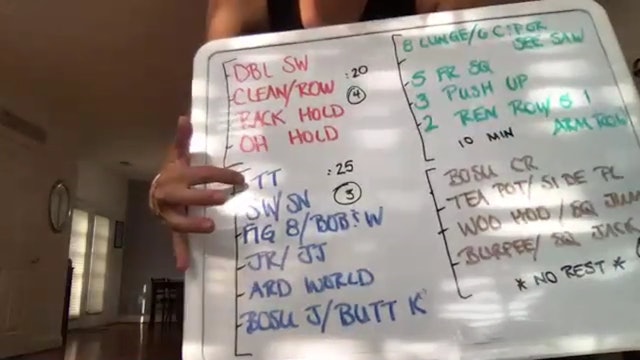 DBL SW
CLEAN/ROW
RACK HOLD
OH HOLD
:20
4
TT
SW/SN
FIG 8/BOB & W
JR/JJ
ARD WORLD
BOSU J/BUTT K
:25
3
8 LUNGE/6
SEE SAW
5 FR SQ
3 PUSH UP
2 REN ROW/
ARM ROW
10 MIN
BOSU CR
TEA POT/SIDE PL
WOO HOO/SQ
BURPEE/SQ JACK
*NO REST*